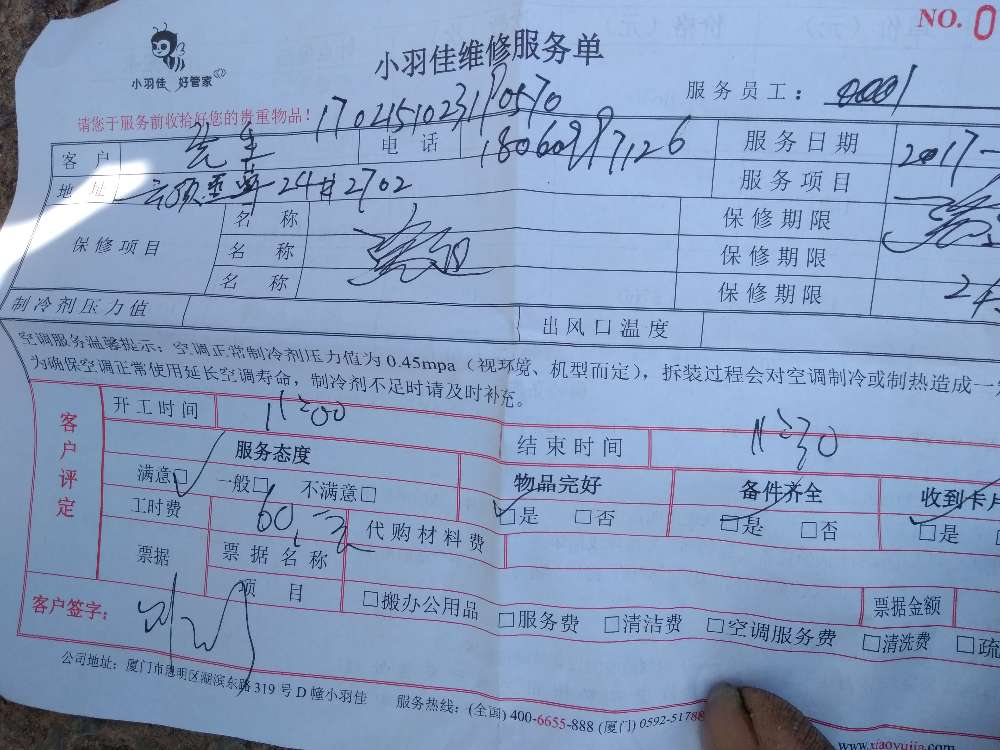 NO. 0
小羽佳 好管家
小羽佳维修服务单
服务员工: 0001
请您于服务前收拾好您的贵重物品!
客户
电话 18060997126
服务日期 2017-
地址 24#2702
服务项目
保修项目
名称
保修期限
名称
保修期限
名称
保修期限
制冷剂压力值
出风口温度
空调服务温馨提示: 空调正常制冷剂压力值为 0.45mpa (视环境、机型而定), 拆装过程会对空调制冷或制热造成一
为确保空调正常使用延长空调寿命, 制冷剂不足时请及时补充。
客户评定
开工时间 11:00
结束时间 11:30
服务态度
物品完好
备件齐全
收到卡片
满意□ 一般□ 不满意□
□是 □否
□是 □否
□是
工时费 60元
代购材料费
票据
票据名称
项目
□搬办公用品 □服务费 □清洁费 □空调服务费 □清洗费 □疏
票据金额
客户签字:
公司地址: 厦门市思明区湖滨东路 319 号 D 幢小羽佳 服务热线: (全国) 400-6655-888 (厦门) 0592-51788
www.xiaoyujia.com